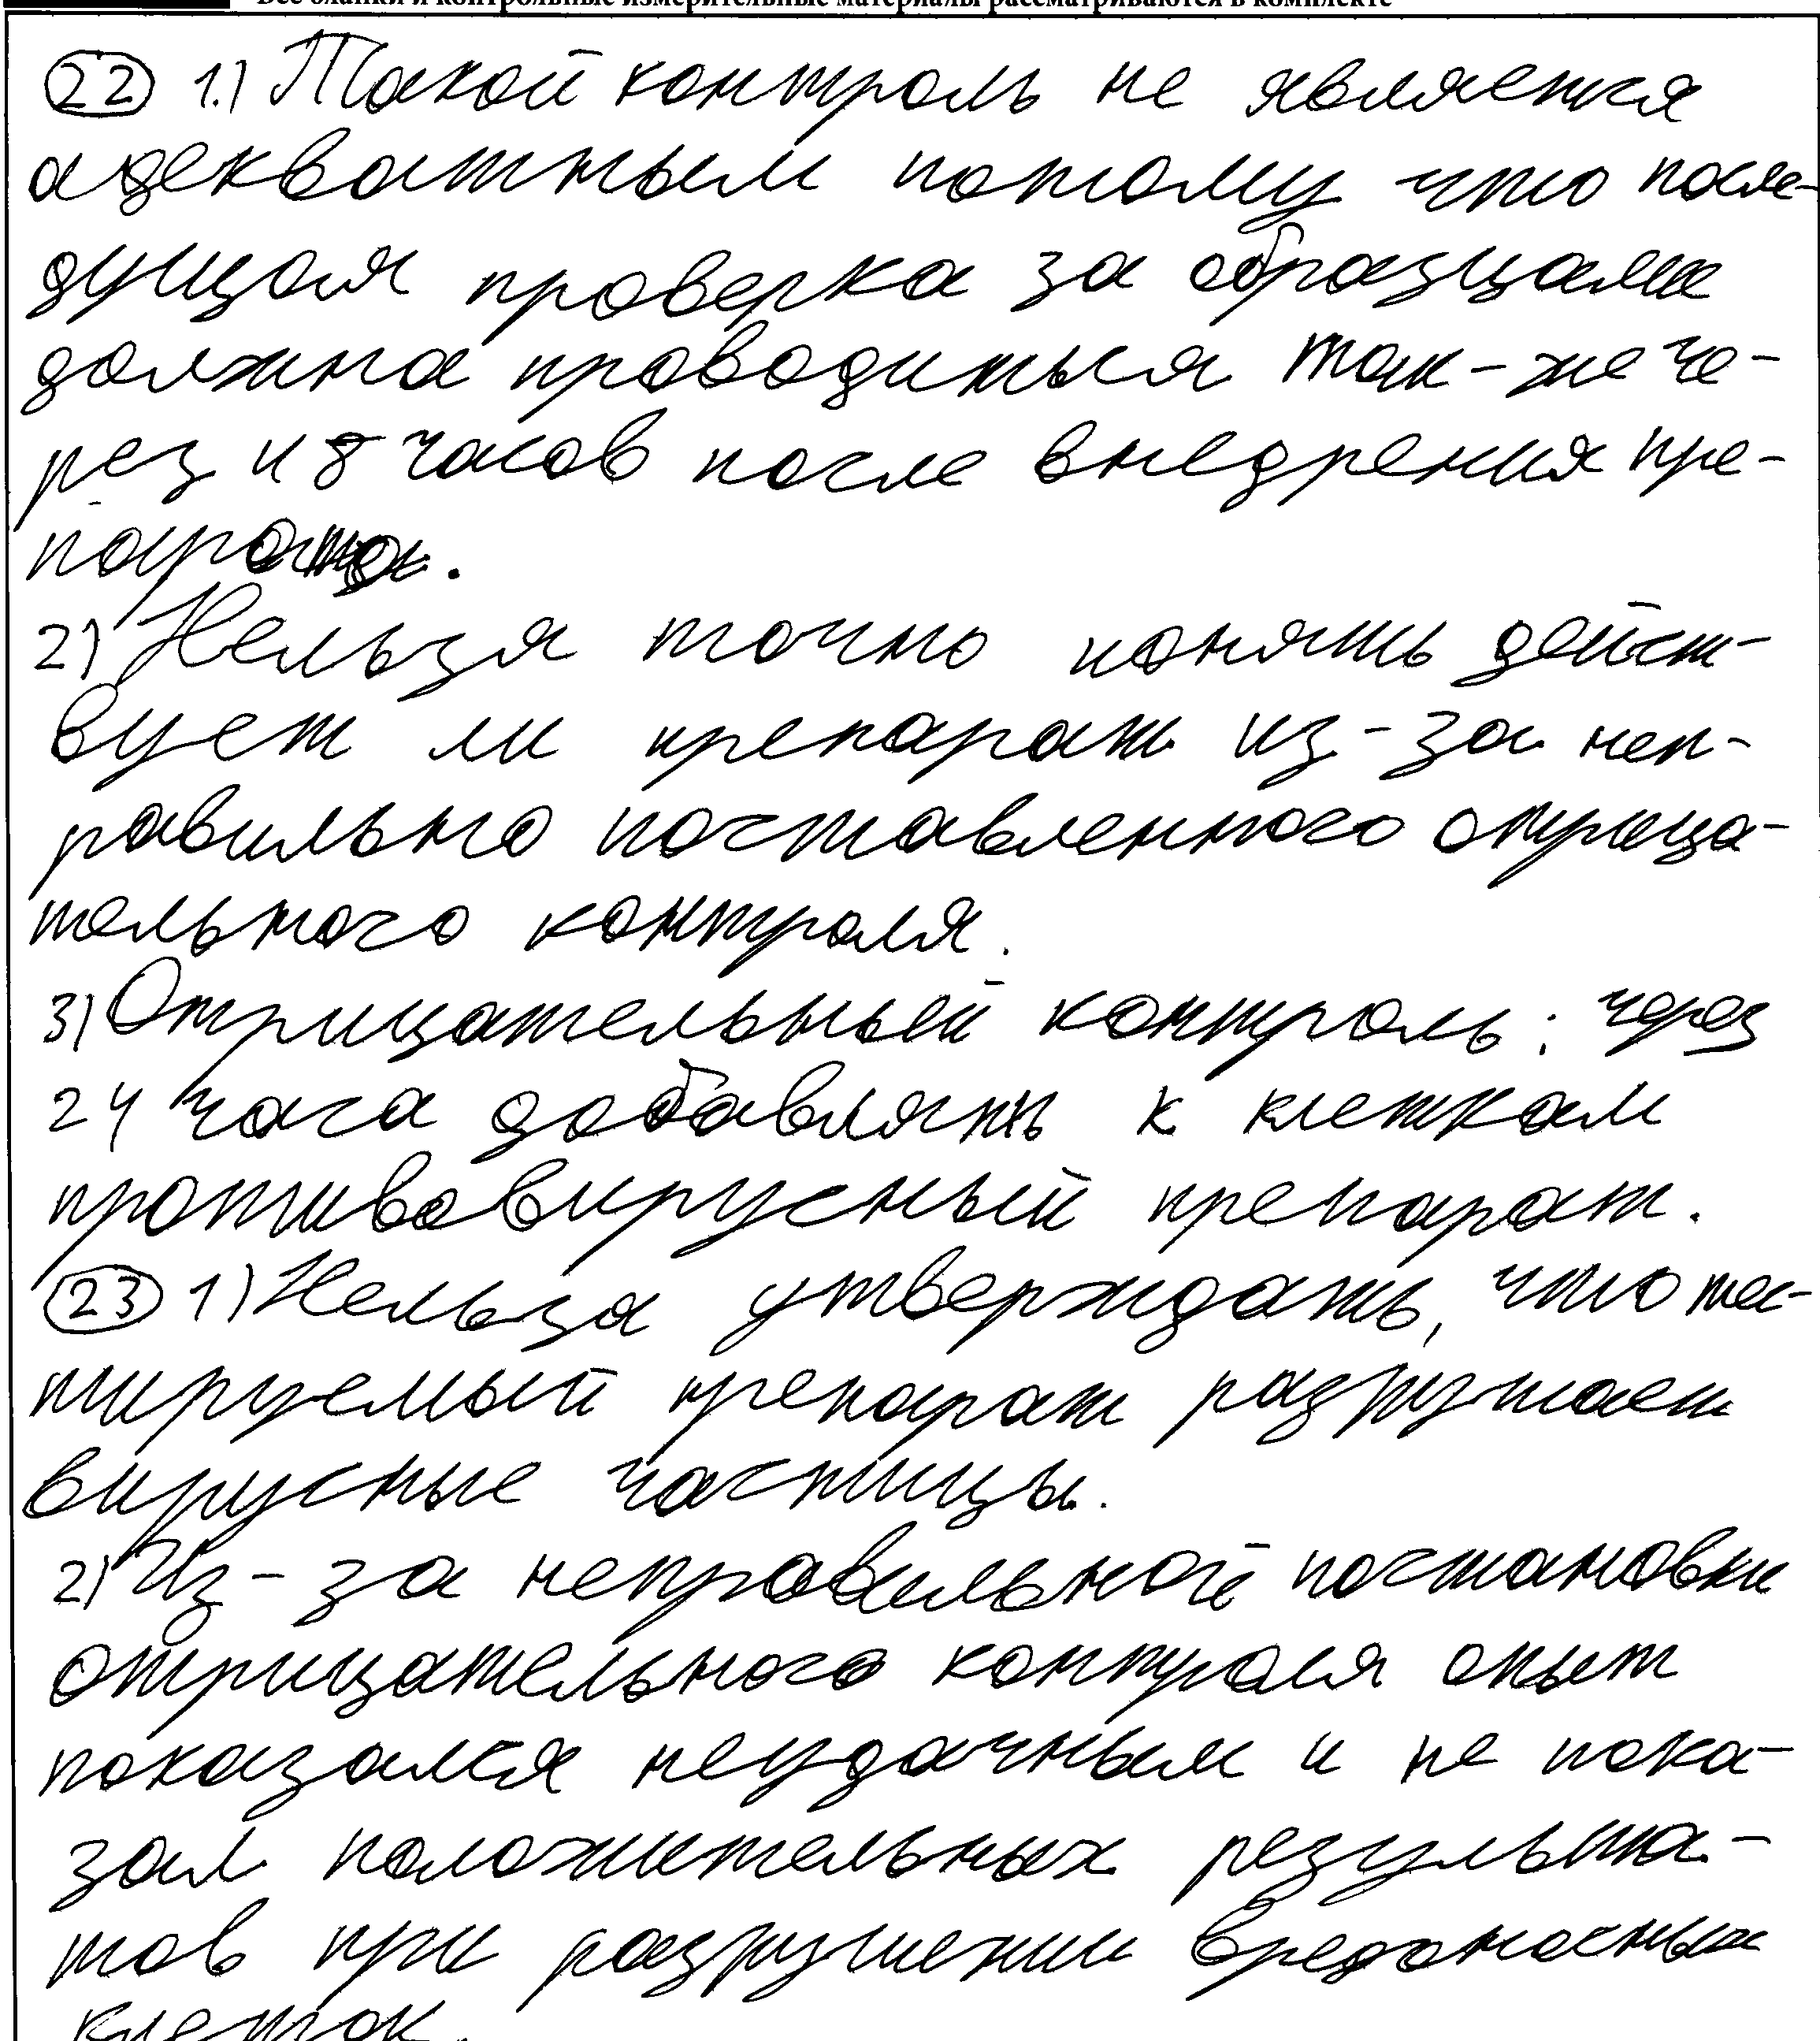 Все бланки и контрольные измерительные материалы рассматриваются в комплекте
22 1.) Такой контроль не является
адекватным потому что после-
дущая проверка за образцами
должна проводиться так-же че-
рез 48 часов после внедрения пре-
парата.
2) Нельзя точно понять дейст-
вует ли препарат из-за неп-
равильно поставленного отрица-
тельного контроля.
3) Отрицательный контроль: через
24 часа добавлять к клеткам
противовирусный препарат.
23 1) Нельза утверждать, что тес-
тируемый препарат разрушает
вирусные частицы.
2) Из-за неправильной постановки
отрицательного контроля опыт
показался неудачным и не пока-
зал положительных результа-
тов при разрушении вредоносных
клеток.